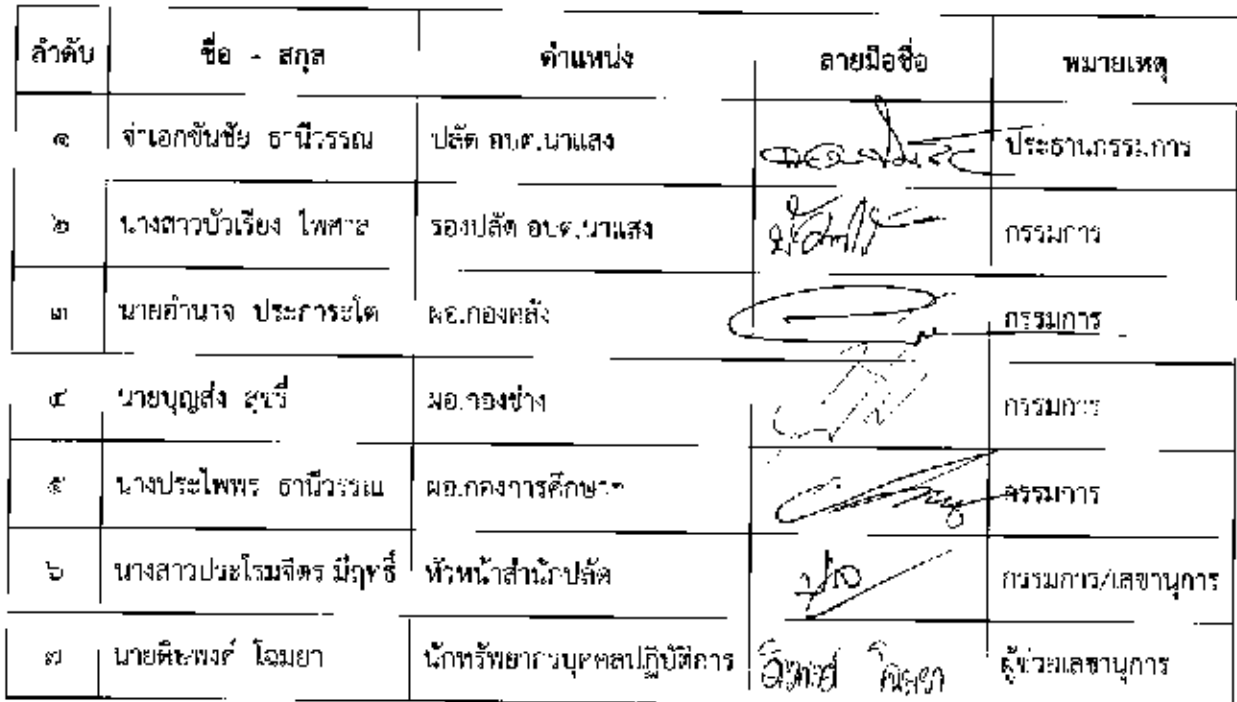 ลำดับ ชื่อ - สกุล ตำแหน่ง ลายมือชื่อ หมายเหตุ
๑ จ่าเอกขันชัย ธานีวรรณ ปลัด อบต.นาแสง ประธานกรรมการ
๒ นางสาวบัวเรียง ไพศาล รองปลัด อบต.นาแสง กรรมการ
๓ นายอำนาจ ประการะโต ผอ.กองคลัง กรรมการ
๔ นายบุญส่ง ผอ.กองช่าง กรรมการ
๕ นางประไพพร ธานีวรรณ ผอ.กองการศึกษาฯ กรรมการ
๖ นางสาวประโรมจิตร มีฤทธิ์ หัวหน้าสำนักปลัด กรรมการ/เลขานุการ
๗ โฉมยา นักทรัพยากรบุคคลปฏิบัติการ ผู้ช่วยเลขานุการ